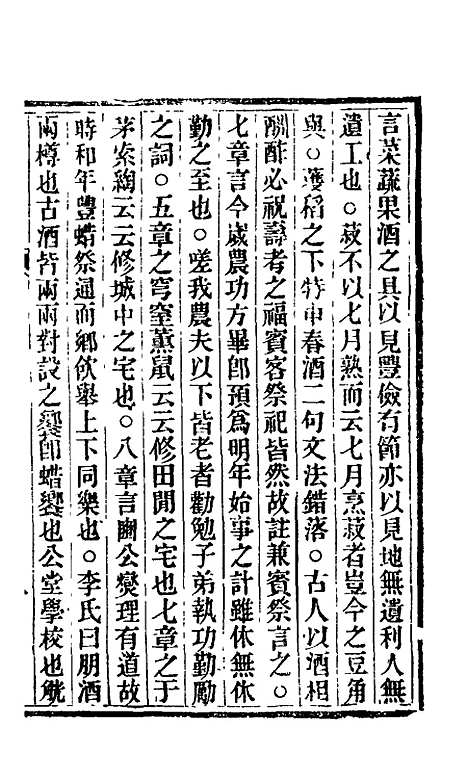 言菜蔬果酒之具以見豐儉有節亦以見地無遺利人無
遺工也○菽不以七月熟而云七月烹菽者豈今之豆角
與○穫稻之下特申春酒二句文法錯落○古人以酒相
酬酢必祝壽考之福賓客祭祀皆然故註兼賓祭言之○
七章言今歲農功方畢卽預爲明年始事之計雖休無休
勤之至也○嗟我農夫以下皆老者勸勉子弟執功勤勵
之詞○五章之穹窒薰鼠云云修田閒之宅也七章之于
茅索綯云云修城中之宅也○八章言豳公爕理有道故
時和年豐蜡祭通而鄉飲舉上下同樂也○李氏曰朋酒
兩樽也古酒皆兩兩對設之饗卽蜡饗也公堂學校也觥